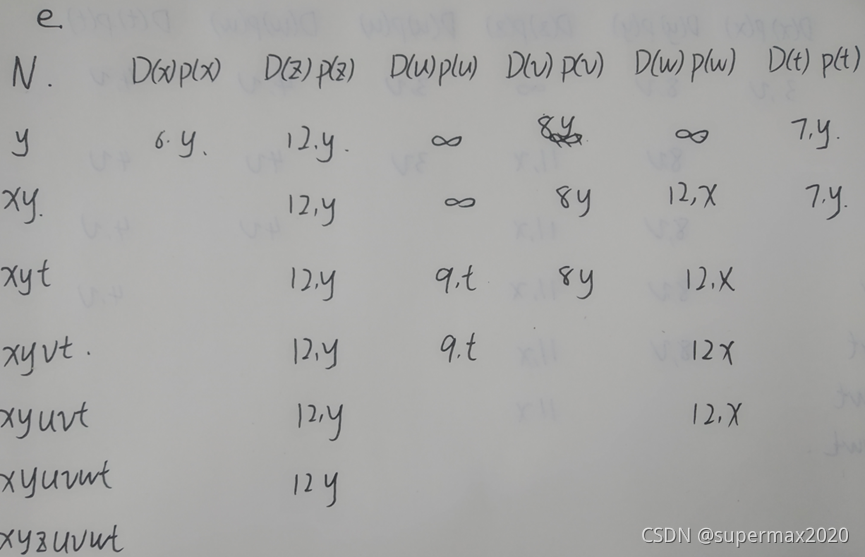 e
N. D(x)p(x) D(z)p(z) D(u)p(u) D(v)p(v) D(w)p(w) D(t)p(t)
y 6.y. 12.y. ∞ 8y ∞ 7.y.
xy. 12,y ∞ 8y 12,x 7.y.
xyt 12,y 9.t 8y 12.x
xyvt. 12,y 9.t 12x
xyuvt 12,y 12.x
xyuvwt 12y
xyzuvwt
CSDN @supermax2020